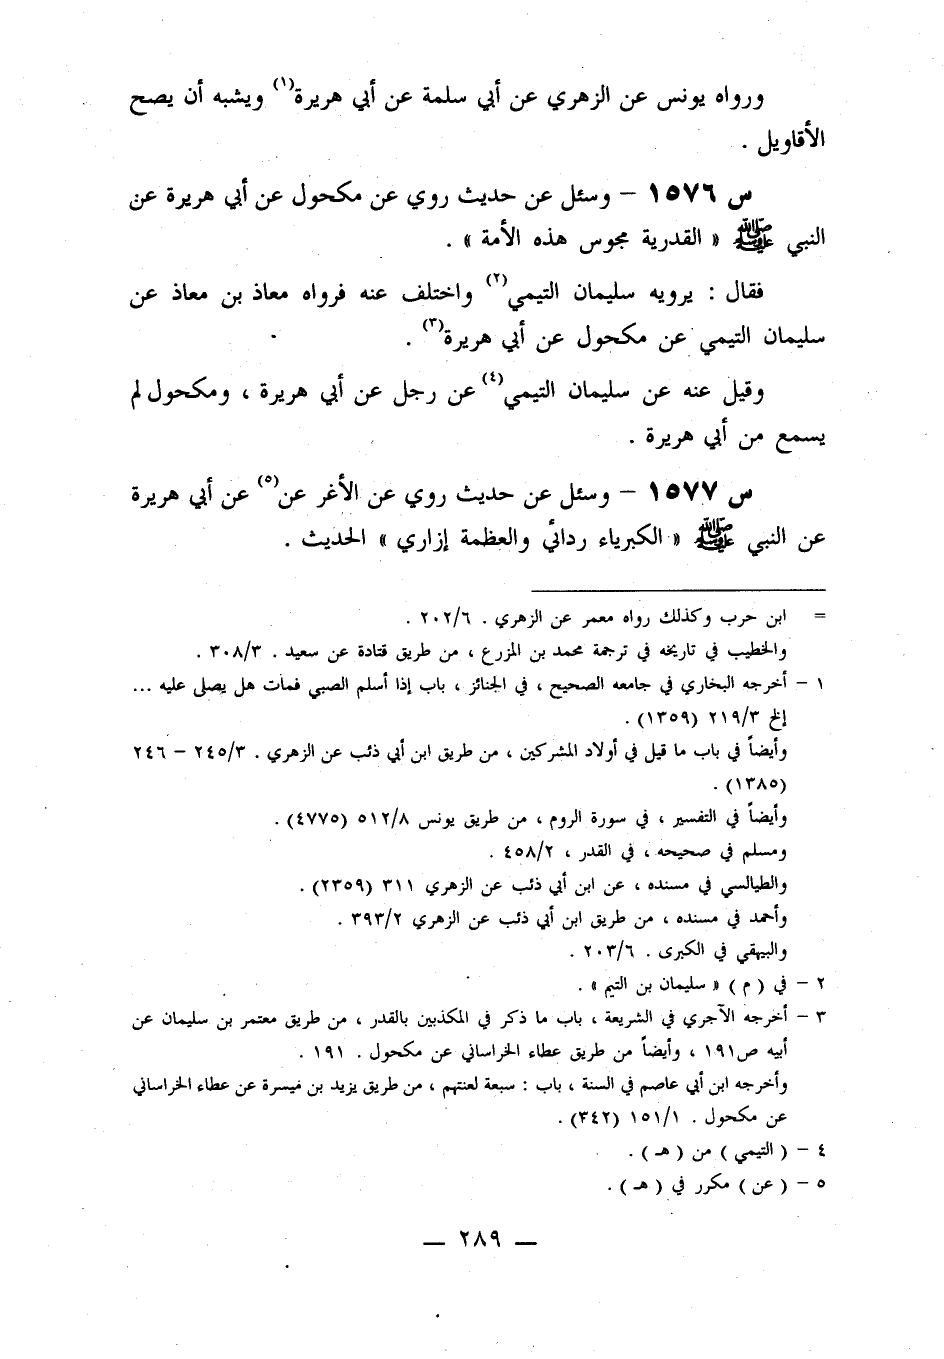 ورواه يونس عن الزهري عن أبي سلمة عن أبي هريرة(١) ويشبه أن يصح
الأقاويل .
س ١٥٧٦ – وسئل عن حديث روي عن مكحول عن أبي هريرة عن
النبي ﷺ « القدرية مجوس هذه الأمة » .
فقال : يرويه سليمان التيمي(٢) واختلف عنه فرواه معاذ بن معاذ عن
سليمان التيمي عن مكحول عن أبي هريرة(٣) .
وقيل عنه عن سليمان التيمي(٤) عن رجل عن أبي هريرة ، ومكحول لم
يسمع من أبي هريرة .
س ١٥٧٧ – وسئل عن حديث روي عن الأغر عن(٥) عن أبي هريرة
عن النبي ﷺ « الكبرياء ردائي والعظمة إزاري » الحديث .
= ابن حرب وكذلك رواه معمر عن الزهري . ٢٠٢/٦ .
والخطيب في تاريخه في ترجمة محمد بن المزرع ، من طريق قتادة عن سعيد . ٣٠٨/٣ .
١ – أخرجه البخاري في جامعه الصحيح ، في الجنائز ، باب إذا أسلم الصبي فمات هل يصلى عليه ...
إلخ ٢١٩/٣ (١٣٥٩) .
وأيضاً في باب ما قيل في أولاد المشركين ، من طريق ابن أبي ذئب عن الزهري . ٢٤٥/٣ – ٢٤٦
(١٣٨٥) .
وأيضاً في التفسير ، في سورة الروم ، من طريق يونس ٥١٢/٨ (٤٧٧٥) .
ومسلم في صحيحه ، في القدر ، ٤٥٨/٢ .
والطيالسي في مسنده ، عن ابن أبي ذئب عن الزهري ٣١١ (٢٣٥٩) .
وأحمد في مسنده ، من طريق ابن أبي ذئب عن الزهري ٣٩٣/٢ .
والبيهقي في الكبرى . ٢٠٣/٦ .
٢ – في ( م ) « سليمان بن التيم » .
٣ – أخرجه الآجري في الشريعة ، باب ما ذكر في المكذبين بالقدر ، من طريق معتمر بن سليمان عن
أبيه ص١٩١ ، وأيضاً من طريق عطاء الخراساني عن مكحول . ١٩١ .
وأخرجه ابن أبي عاصم في السنة ، باب : سبعة لعنتهم ، من طريق يزيد بن ميسرة عن عطاء الخراساني
عن مكحول . ١٥١/١ (٣٤٢) .
٤ – ( التيمي ) من ( هـ ) .
٥ – ( عن ) مكرر في ( هـ ) .
— ٢٨٩ —